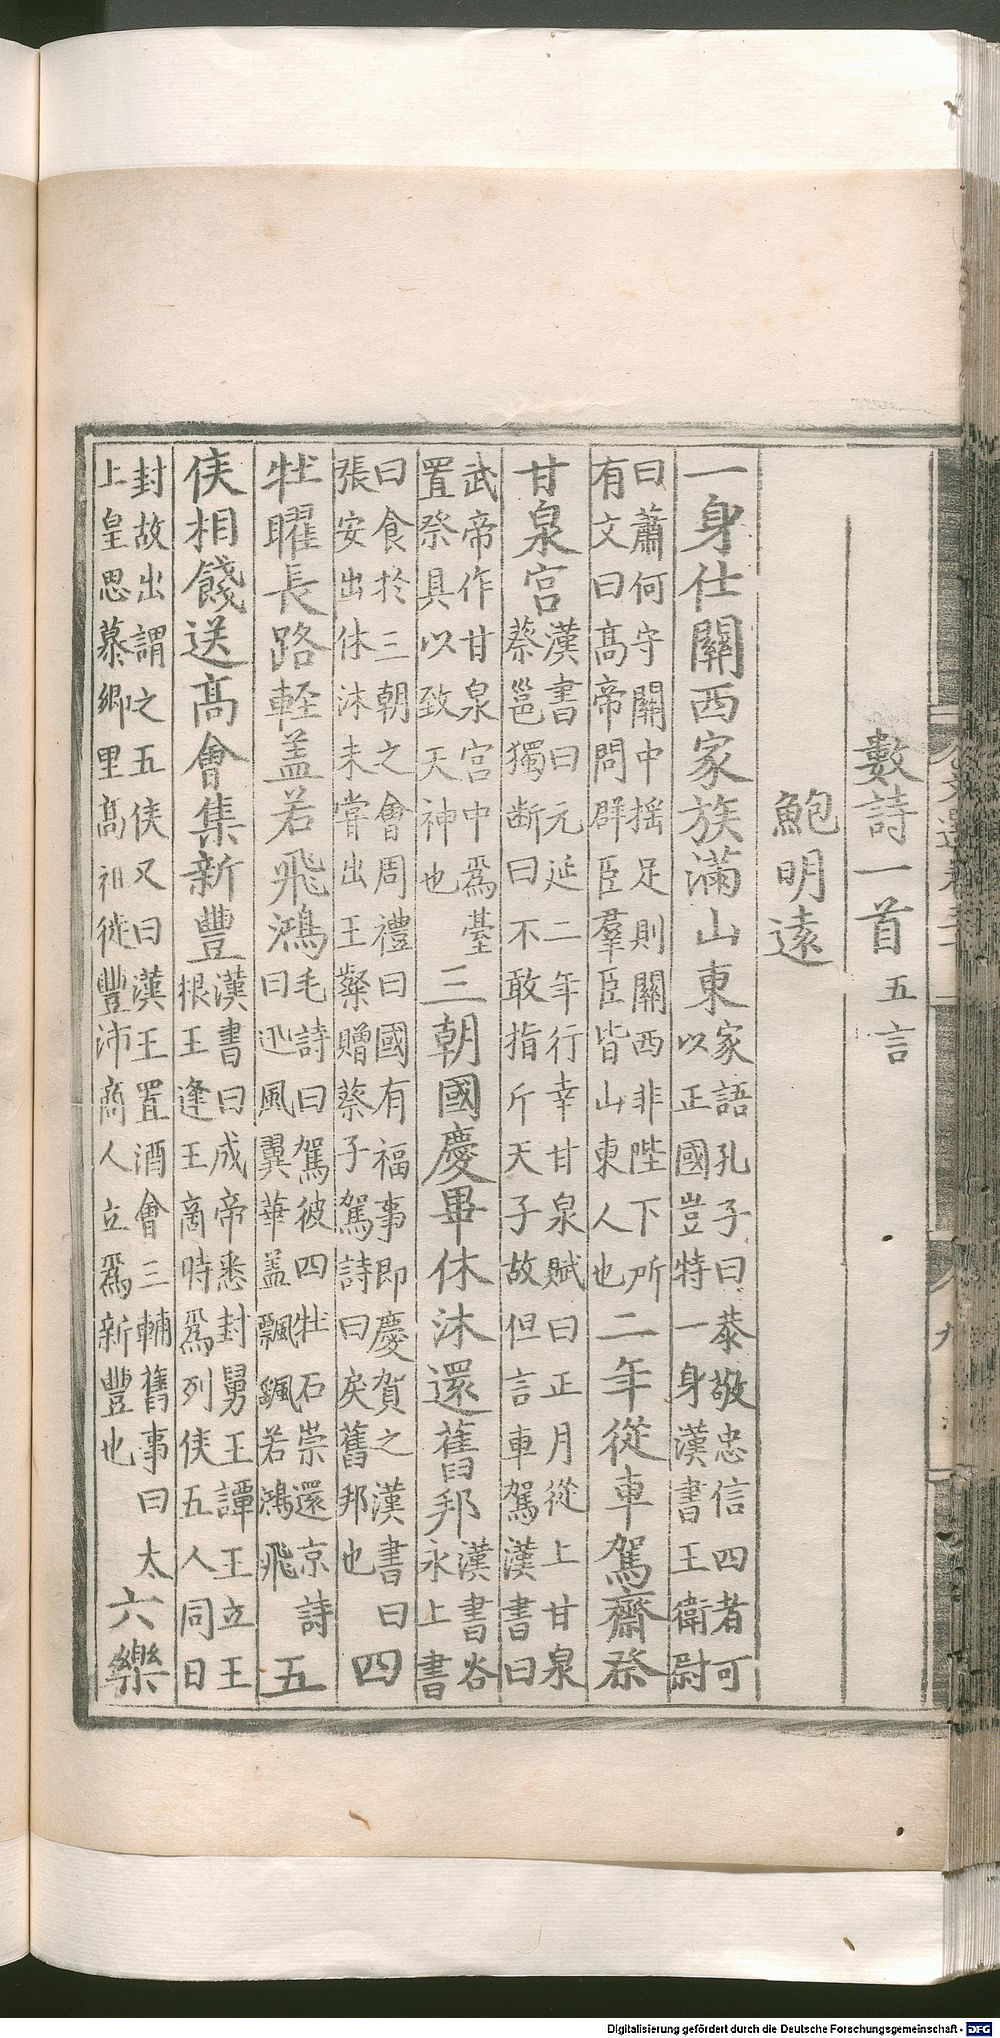 數詩一首五言
鮑明遠
一身仕關西家族滿山東家語孔子曰恭敬忠信四者可
以正國豈特一身漢書王衛尉
曰蕭何守關中揺足則關西非陛下所
有文曰高帝問群臣羣臣皆山東人也二年從車駕齋祭
甘泉宮漢書曰元延二年行幸甘泉賦曰正月從上甘泉
蔡邕獨断曰不敢指斥天子故但言車駕漢書曰
武帝作甘泉宮中爲臺
置祭具以致天神也三朝國慶畢休沐還舊邦漢書谷
永上書
曰食於三朝之會周禮曰國有福事即慶賀之漢書曰
張安出休沐未嘗出王粲贈蔡子駕詩曰矣舊邦也四
牡曜長路軽盖若飛鴻毛詩曰駕彼四牡石崇還京詩
曰迅風翼華盖飄颻若鴻飛五
侯相餞送高會集新豐漢書曰成帝悉封舅王譚王立王
根王逢王商時爲列侯五人同日
封故出謂之五侯又曰漢王置酒會三輔舊事曰太
上皇思慕郷里高祖徙豐沛商人立爲新豐也六樂
九
Digitalisierung gefördert durch die Deutsche Forschungsgemeinschaft - DFG